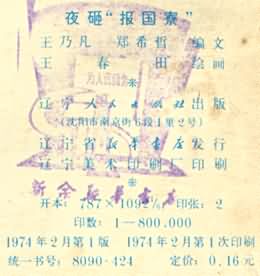 夜砸“报国寮”
王乃凡 郑希哲 编文
王春田 绘画
辽宁人民出版社出版
(沈阳市南京街6段1里2号)
辽宁省新华书店发行
辽宁美术印刷厂印刷
新余新华书店
开本: 787×1092 印张: 2
印数: 1—800,000
1974年2月第1版 1974年2月第1次印刷
统一书号: 8090·424 定价: 0.16元